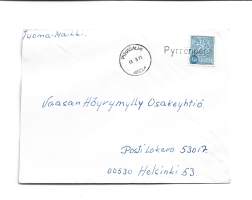 Tuoma-Markk.
Pyrrönperä
Vaasan Höyrymylly Osakeyhtiö
Posti Lokero 53017.
00530 Helsinki 53.